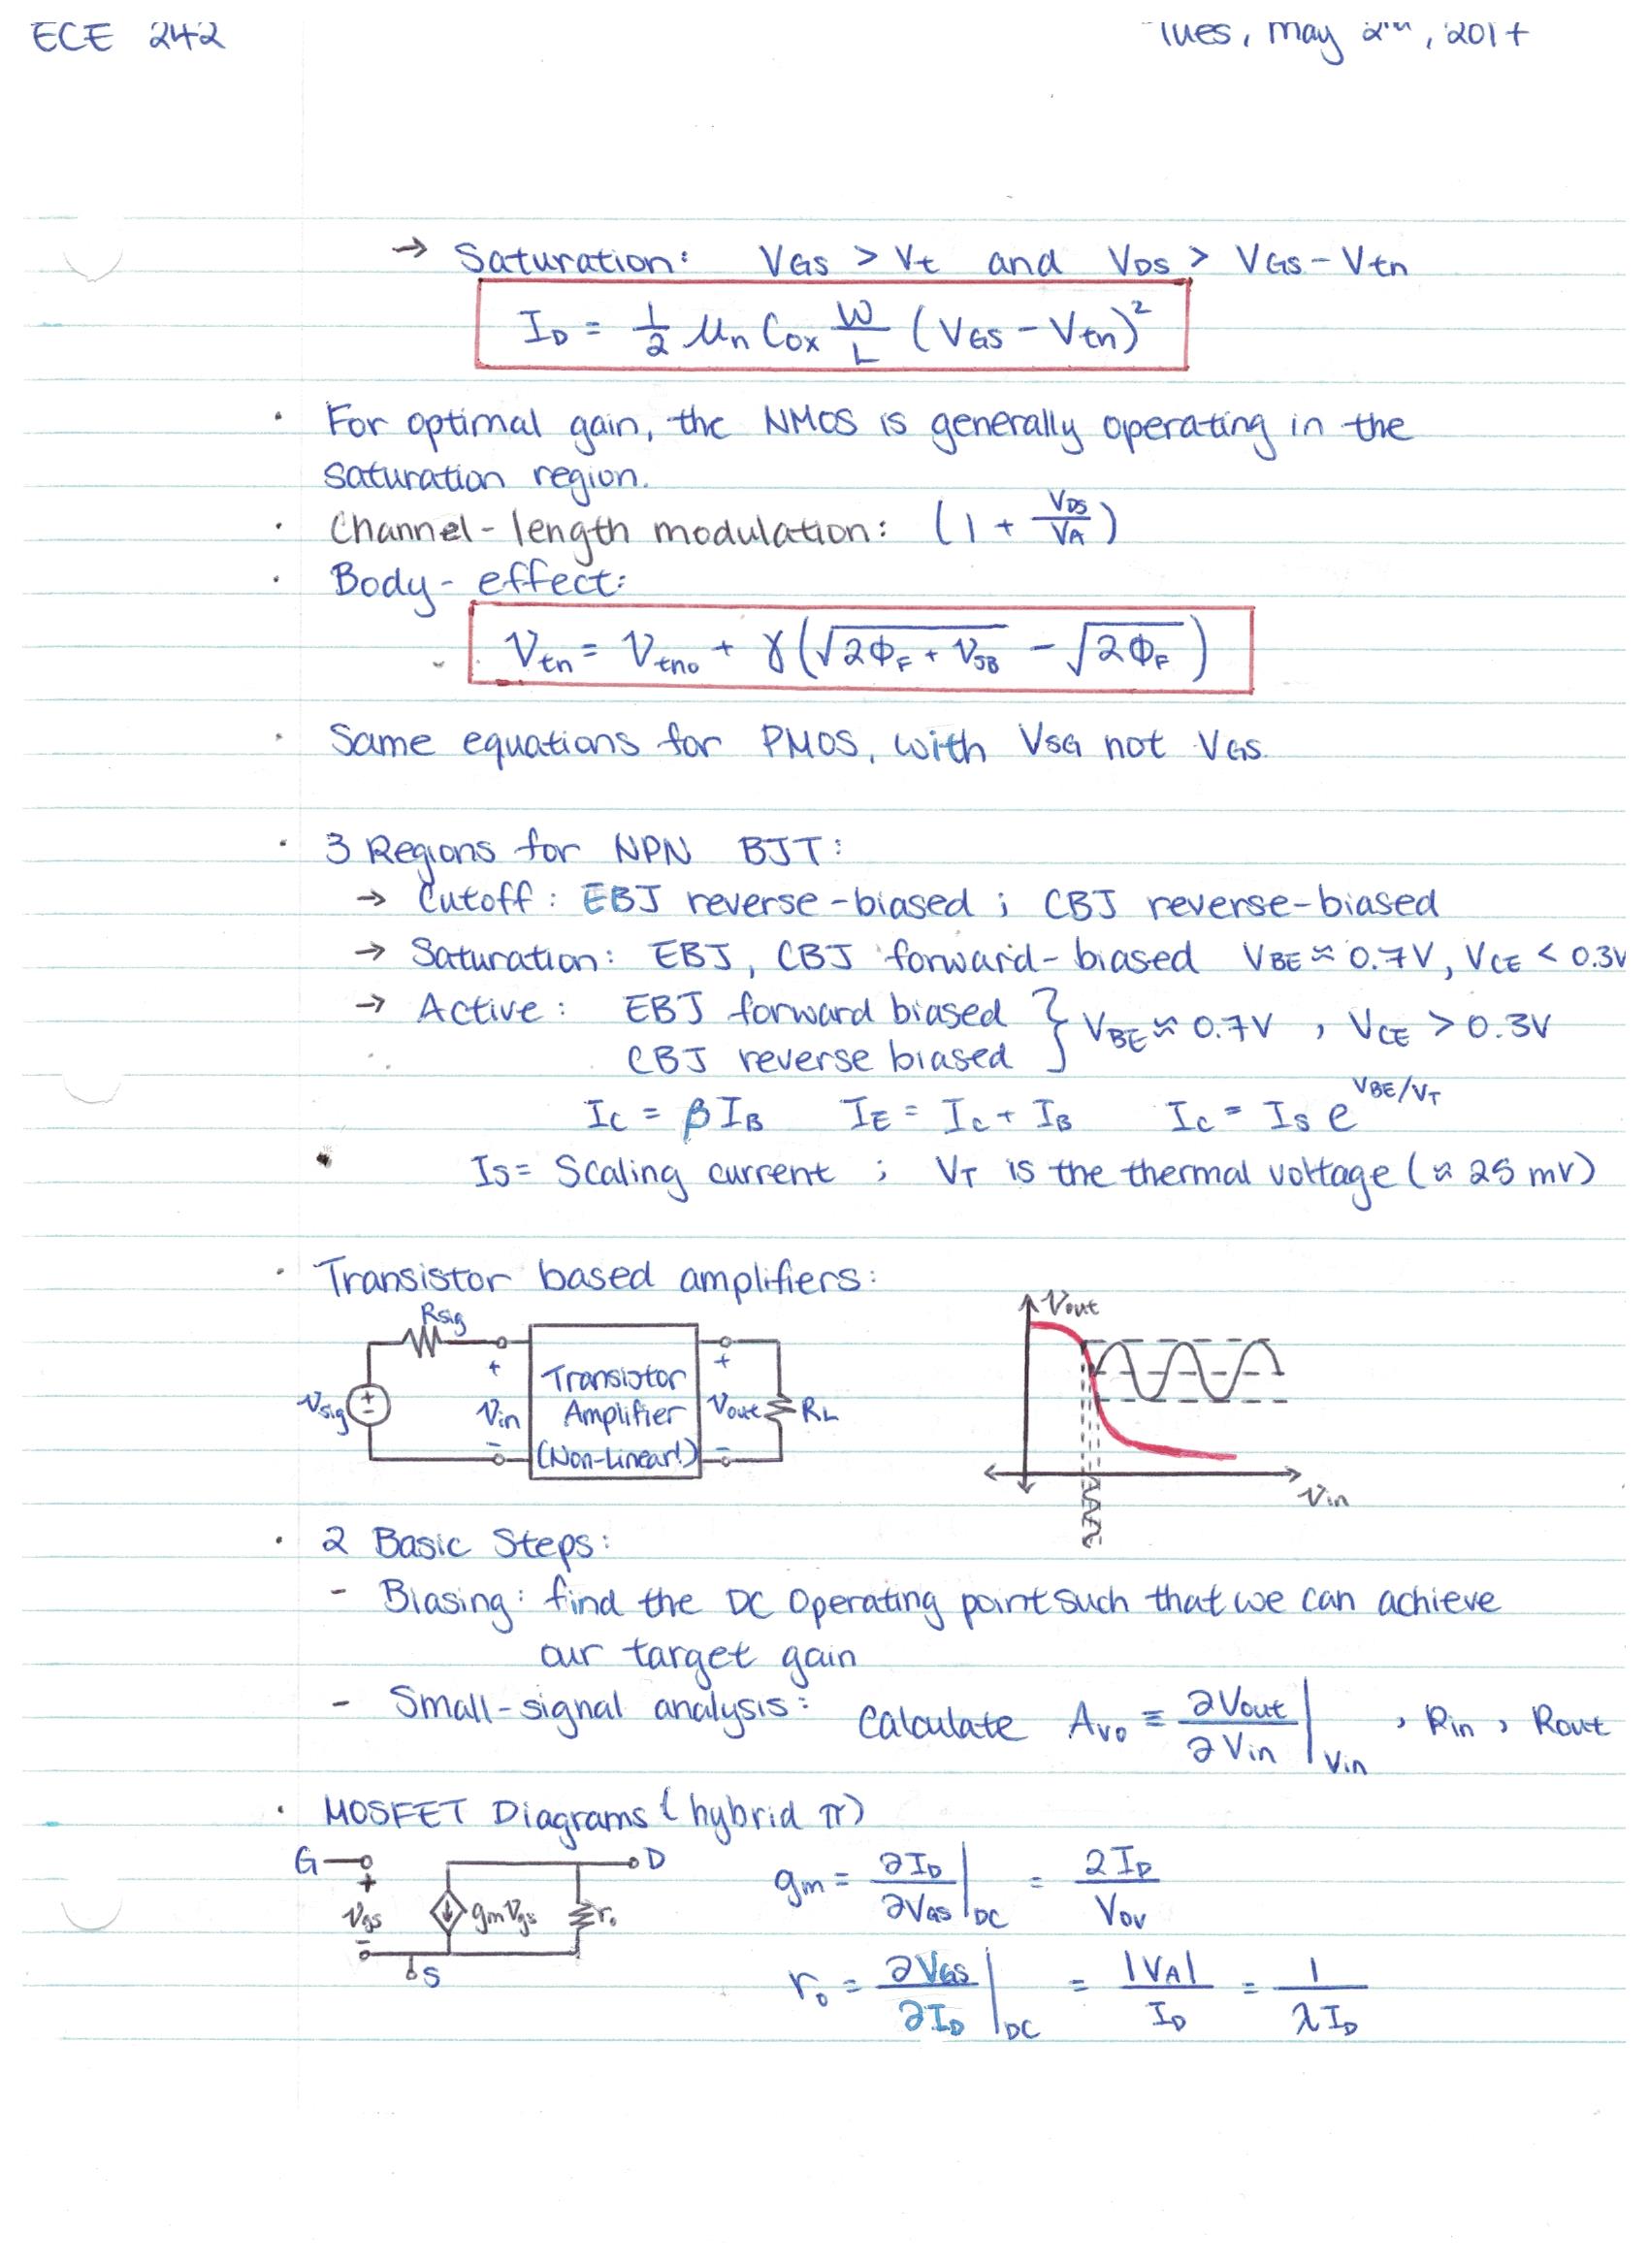 ECE 242
Tues, May 2nd, 2017
→ Saturation: VGS > Vt and VDS > VGS - Vtn
ID = 1/2 μn Cox W/L (VGS - Vtn)²
· For optimal gain, the NMOS is generally operating in the
saturation region.
· Channel-length modulation: (1 + VDS/VA)
· Body-effect:
Vtn = Vtno + γ(√2ΦF + VSB - √2ΦF)
· Same equations for PMOS, with VSG not VGS.
· 3 Regions for NPN BJT:
→ Cutoff: EBJ reverse-biased ; CBJ reverse-biased
→ Saturation: EBJ, CBJ forward-biased VBE ≈ 0.7V, VCE < 0.3V
→ Active: EBJ forward biased } VBE ≈ 0.7V , VCE > 0.3V
CBJ reverse biased
IC = βIB IE = IC + IB IC = IS e^VBE/VT
IS = Scaling current ; VT is the thermal voltage (≈ 25 mV)
· Transistor based amplifiers:
Rsig
Vsig
+
Vin
-
Transistor
Amplifier
(Non-Linear!)
+
Vout
-
RL
Vout
Vin
· 2 Basic Steps:
- Biasing: find the DC operating point such that we can achieve
our target gain
- Small-signal analysis: Calculate Avo ≡ ∂Vout/∂Vin |Vin , Rin , Rout
· MOSFET Diagrams (hybrid π)
G
+
Vgs
-
gmVgs
ro
D
S
gm = ∂ID/∂VGS |DC = 2ID/VOV
ro = ∂VGS/∂ID |DC = |VA|/ID = 1/λID